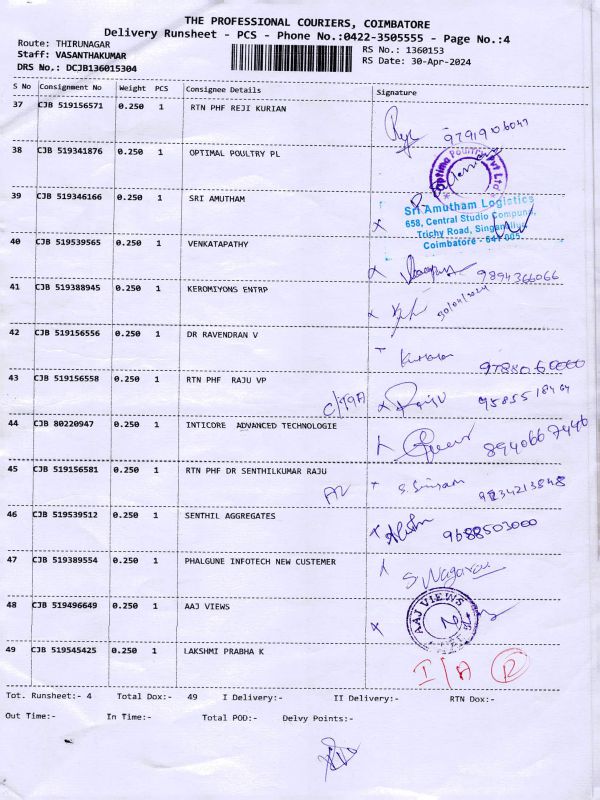 THE PROFESSIONAL COURIERS, COIMBATORE
Delivery Runsheet - PCS - Phone No.:0422-3505555 - Page No.:4
Route: THIRUNAGAR
RS No.: 1360153
Staff: VASANTHAKUMAR
RS Date: 30-Apr-2024
DRS No.: DCJB136015304
S No Consignment No Weight PCS Consignee Details Signature
37 CJB 519156571 0.250 1 RTN PHF REJI KURIAN
9791906047
38 CJB 519341876 0.250 1 OPTIMAL POULTRY PL
Optima Poultry Pvt Ltd
39 CJB 519346166 0.250 1 SRI AMUTHAM
Sri Amutham Logistics
658, Central Studio Compound,
Trichy Road, Singanallur
Coimbatore - 641 005.
40 CJB 519539565 0.250 1 VENKATAPATHY
9894366066
41 CJB 519388945 0.250 1 KEROMIYONS ENTRP
30/04/2024
42 CJB 519156556 0.250 1 DR RAVENDRAN V
43 CJB 519156558 0.250 1 RTN PHF RAJU VP
Raju
9585518404
44 CJB 80220947 0.250 1 INTICORE ADVANCED TECHNOLOGIE
8940667446
45 CJB 519156581 0.250 1 RTN PHF DR SENTHILKUMAR RAJU
9234213848
46 CJB 519539512 0.250 1 SENTHIL AGGREGATES
9688503000
47 CJB 519389554 0.250 1 PHALGUNE INFOTECH NEW CUSTEMER
S. Nagaraj
48 CJB 519496649 0.250 1 AAJ VIEWS
AAJ VIEWS
49 CJB 519545425 0.250 1 LAKSHMI PRABHA K
I/A R
Tot. Runsheet:- 4 Total Dox:- 49 I Delivery:- II Delivery:- RTN Dox:-
Out Time:- In Time:- Total POD:- Delvy Points:-